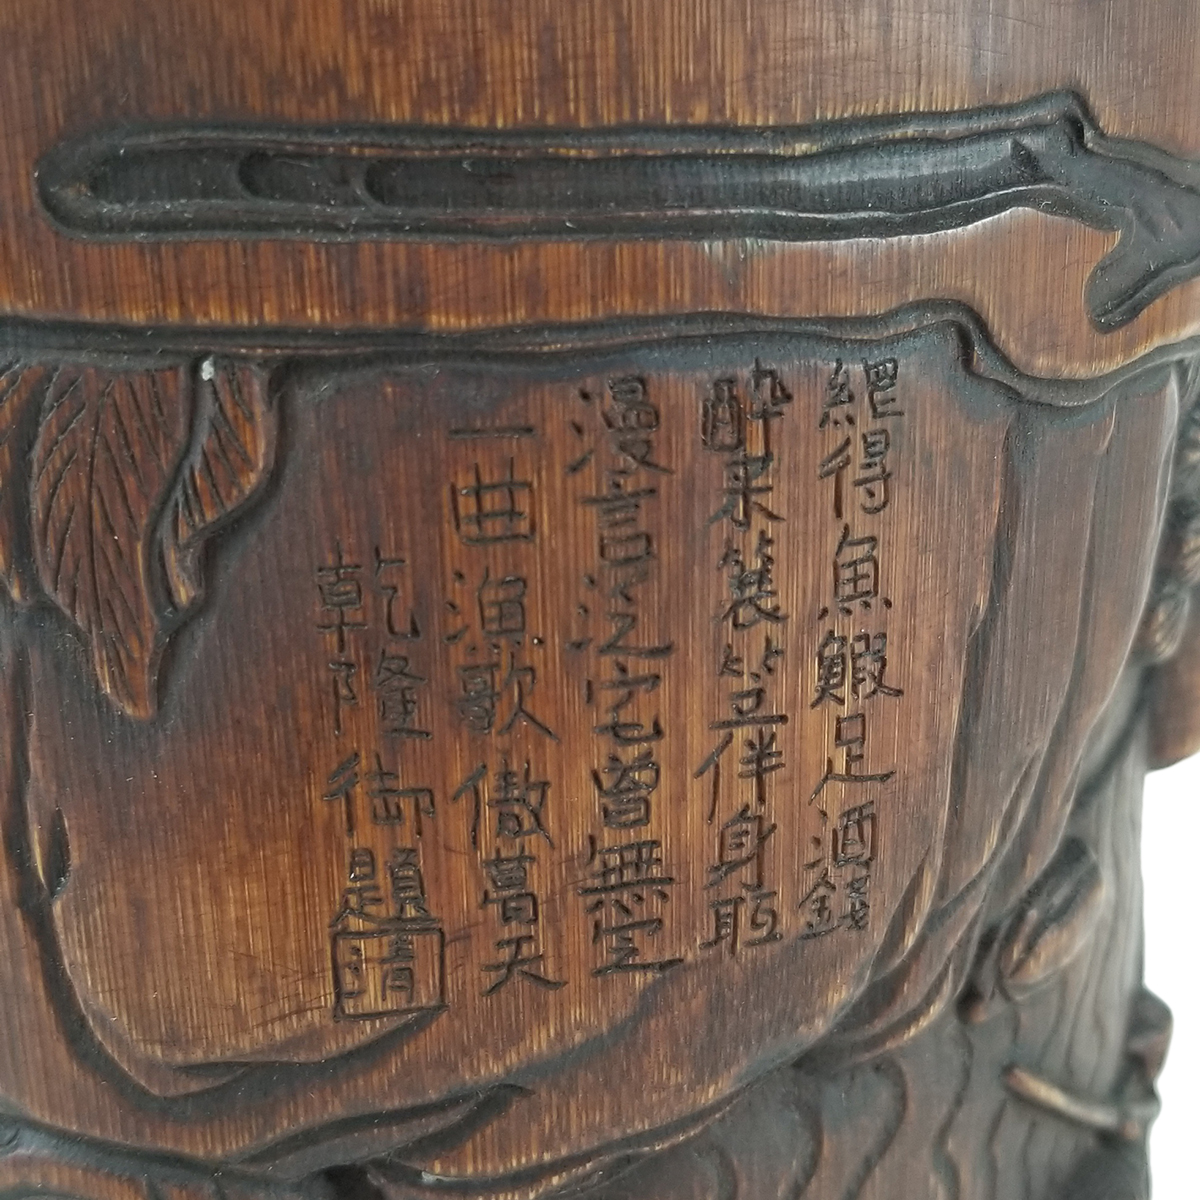 網得魚鰕足酒錢
醉來簑笠伴身眠
漫言泛宅曾無定
一曲漁歌傲葛天
乾隆御題
清